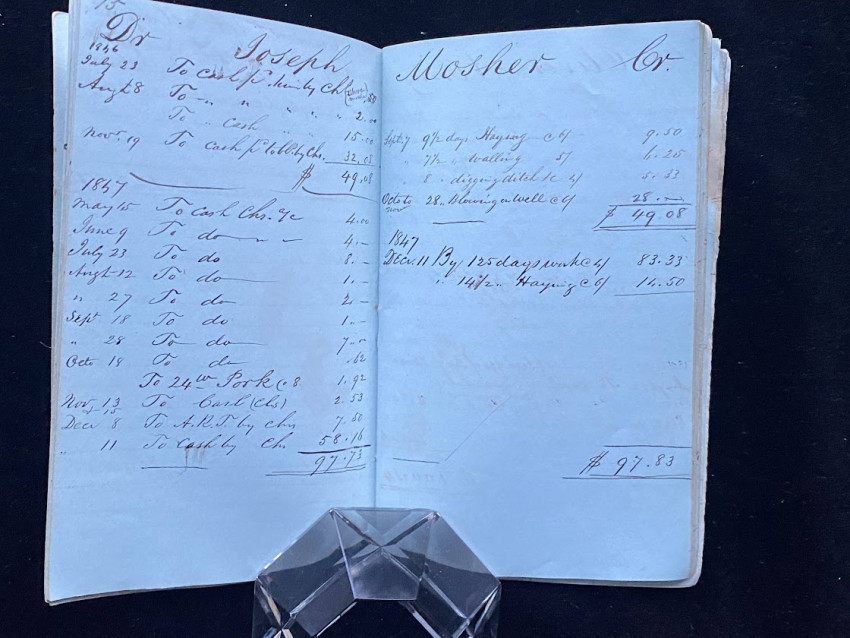 15
Dr Joseph
1846
July 23 To cash pr. hun by Chs .50
Augt 8 To " " " " " 2.00
To " cash " " 15.00
Novr. 19 To cash pr by Chs. 32.08
$ 49.08
1847
May 15 To cash Chs. 4.00
June 9 To do 4.-
July 23 To do 8.-
Augt 12 To do 1.-
" 27 To do 2.-
Sept 18 To do 1.-
" 28 To do 7.00
Octo 19 To do .62
To 24 lb Pork c 8 1.92
Nov. 13 To Cash (Chs) 2.53
Decr 8 To A.K.T. by Chs 7.50
" 11 To Cash by Chs 58.16
97.73
Mosher Cr.
Sept. 7 9 1/2 days Haying c 6/ 9.50
" 7 1/2 " walling 5/ 6.25
8 " digging ditch &c 4/ 5.33
Octo 28 " Stoning a well c 6/ 28.-
$ 49.08
1847
Decr. 11 By 125 days work c 4/ 83.33
" 14 1/2 " Haying c 6/ 14.50
$ 97.83